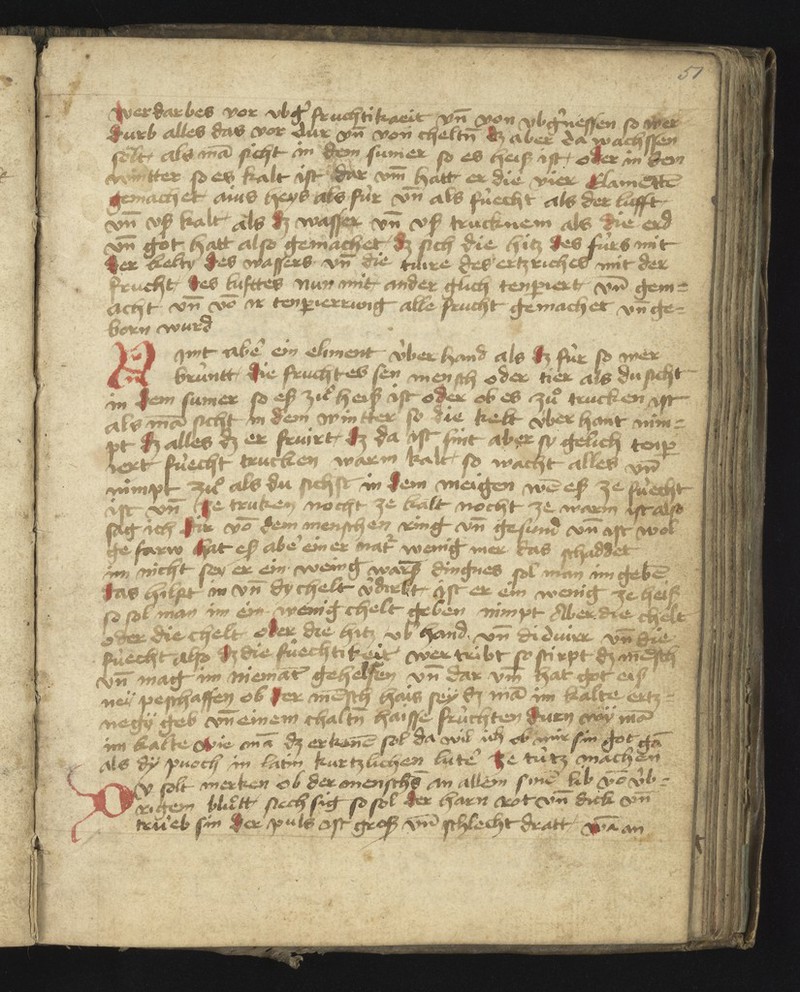 51
verdarbes vor vbg fruchtikaeit vn̄ von vbg'nessen so wer
durb alles das vor dur vn̄ von cheltn̄ dz aber da wachssen
solt als mā sicht in dem sumer so es heis ist oder in den
wintter so es kalt ist dar vm̄ hatt er die vier Elamettē
gemachet aius heys als für vn̄ als fùecht als der lufft
vn̄ vß kalt als dz wasser vn̄ vß trucknem als die erd
vn̄ got hatt also gemachet dz sich die hitz des fùrs mit
der kelty des wassers vn̄ die tùre des ertzriches mit der
frucht des lufttes nun mit ander glich tenpiert vn̄ gem=
acht vn̄ vō ir tenpierrung alle frucht gemachet vn̄ ge=
born wurd
Nimt abe' ein eliment ùber hand als dz fùr so wer
brùntt die fruchtes sen mensch oder tier als du sicht
in dem sumer so eß zu' heiß ist oder ob es zu' trucken ist
als mā sicht in dem wintter so die kelt ùber hant nim=
pt dz alles dz er fruirt dz da ist sint aber sy gelich tenp
iert fùecht trucken warm kalt so wacht alles vn̄
nimpt zu' als du sichst in dem meigen wē eß ze fùecht
ist vn̄ ze truken nocht ze kalt nocht ze warm ist also
sag ich dir vō dem menschen ring vn̄ gesund vn̄ ist wol
ge farw hat eß abe' einer nat' wenig mer das schaddet
im nicht sey er ein wenig warß dingnes sol man im gebē
das hilft in vn̄ dy chelt v'dirbt ist er ein wenig ze heiß
so sol man im ein wenig chelt geben nimpt Aber die chelt
oder die chelt oder die hitz vb' hand vn̄ di dùirr vn̄ die
fùecht also dz die fùechtikeit wer tribt so stirpt dz mēsch
vn̄ mag im niemant gehelfen vn̄ dar vm̄ hat got eis
ney peschaffen ob der mēsch hais sey dz mā im kalte ertz=
negy geb vn̄ einem chaltn̄ haisse frùchten durn wy mā
im kalte wie mā dz erkenē sol da wil ich ob mir sin got gā
als dy puoch in latin kurtzlichen lute' ze tùtz machen
Du solt merken ob der menschē an allem sinē lib vō ùb=
rigem bluett siech sig so sol der harn rot vn̄ dick vn̄
trùeb sin der puls ist groß vn̄ schlecht dratt wā an